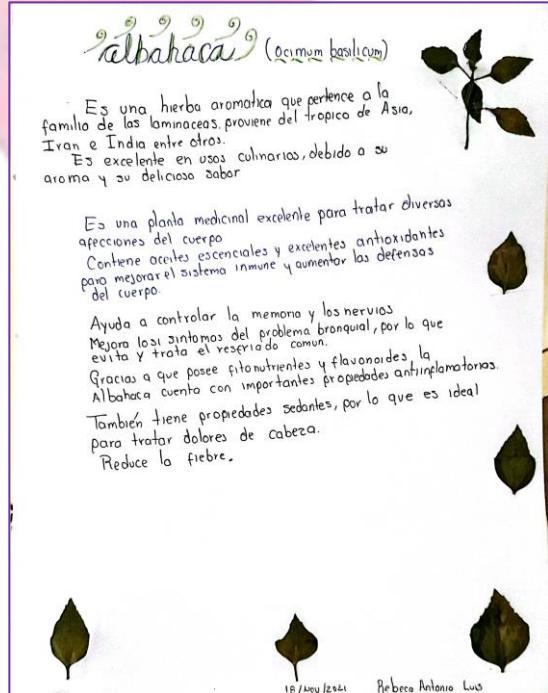 albahaca (ocimum basilicum)
Es una hierba aromatica que pertence a la
familia de las laminaceas. proviene del tropico de Asia,
Iran e India entre otros.
Es excelente en usos culinarios, debido a su
aroma y su delicioso sabor
Es una planta medicinal excelente para tratar diversas
afecciones del cuerpo
Contiene aceites escenciales y excelentes antioxidantes
para mejorar el sistema inmune y aumentar las defensas
del cuerpo.
Ayuda a controlar la memoria y los nervios
Mejora losi sintomas del problema bronquial, por lo que
evita y trata el resfriado comun.
Gracias a que posee fitonutrientes y flavonoides, la
Albahaca cuenta con importantes propiedades antiinflamatorias.
También tiene propiedades sedantes, por lo que es ideal
para tratar dolores de cabeza.
Reduce la fiebre.
18/Nov/2021 Rebeca Antonio Luis